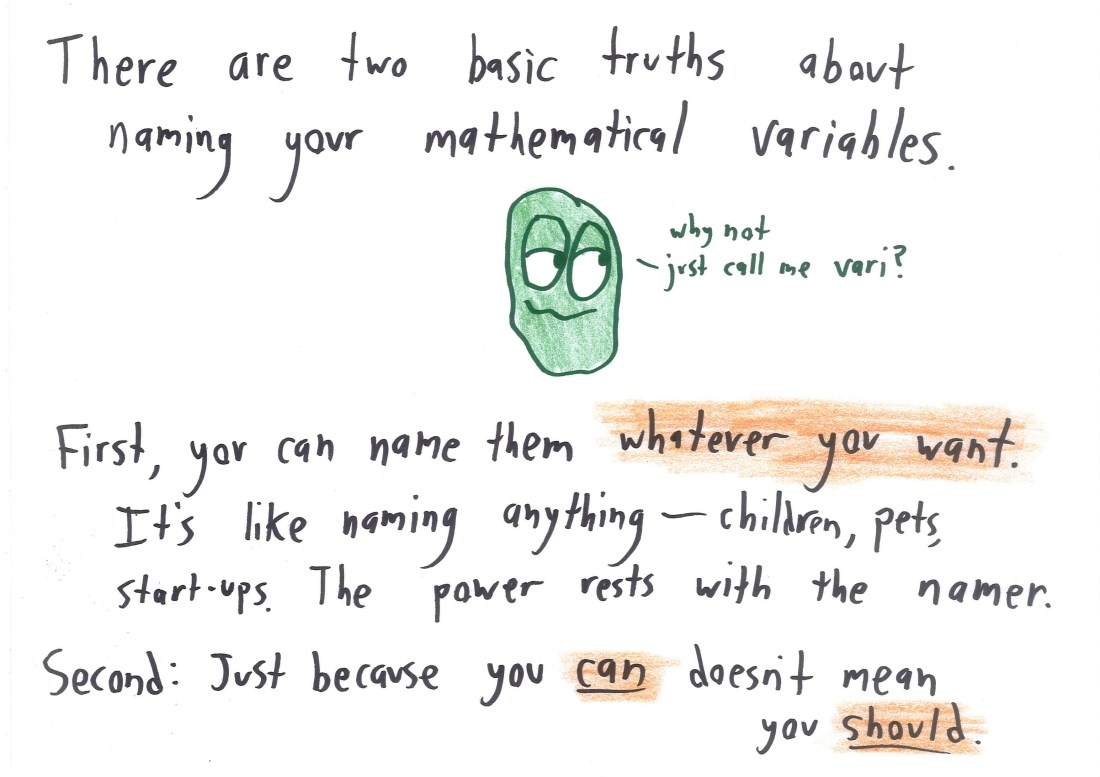 There are two basic truths about
naming your mathematical variables.
why not
just call me vari?
First, you can name them whatever you want.
It's like naming anything — children, pets,
start-ups. The power rests with the namer.
Second: Just because you can doesn't mean
you should.